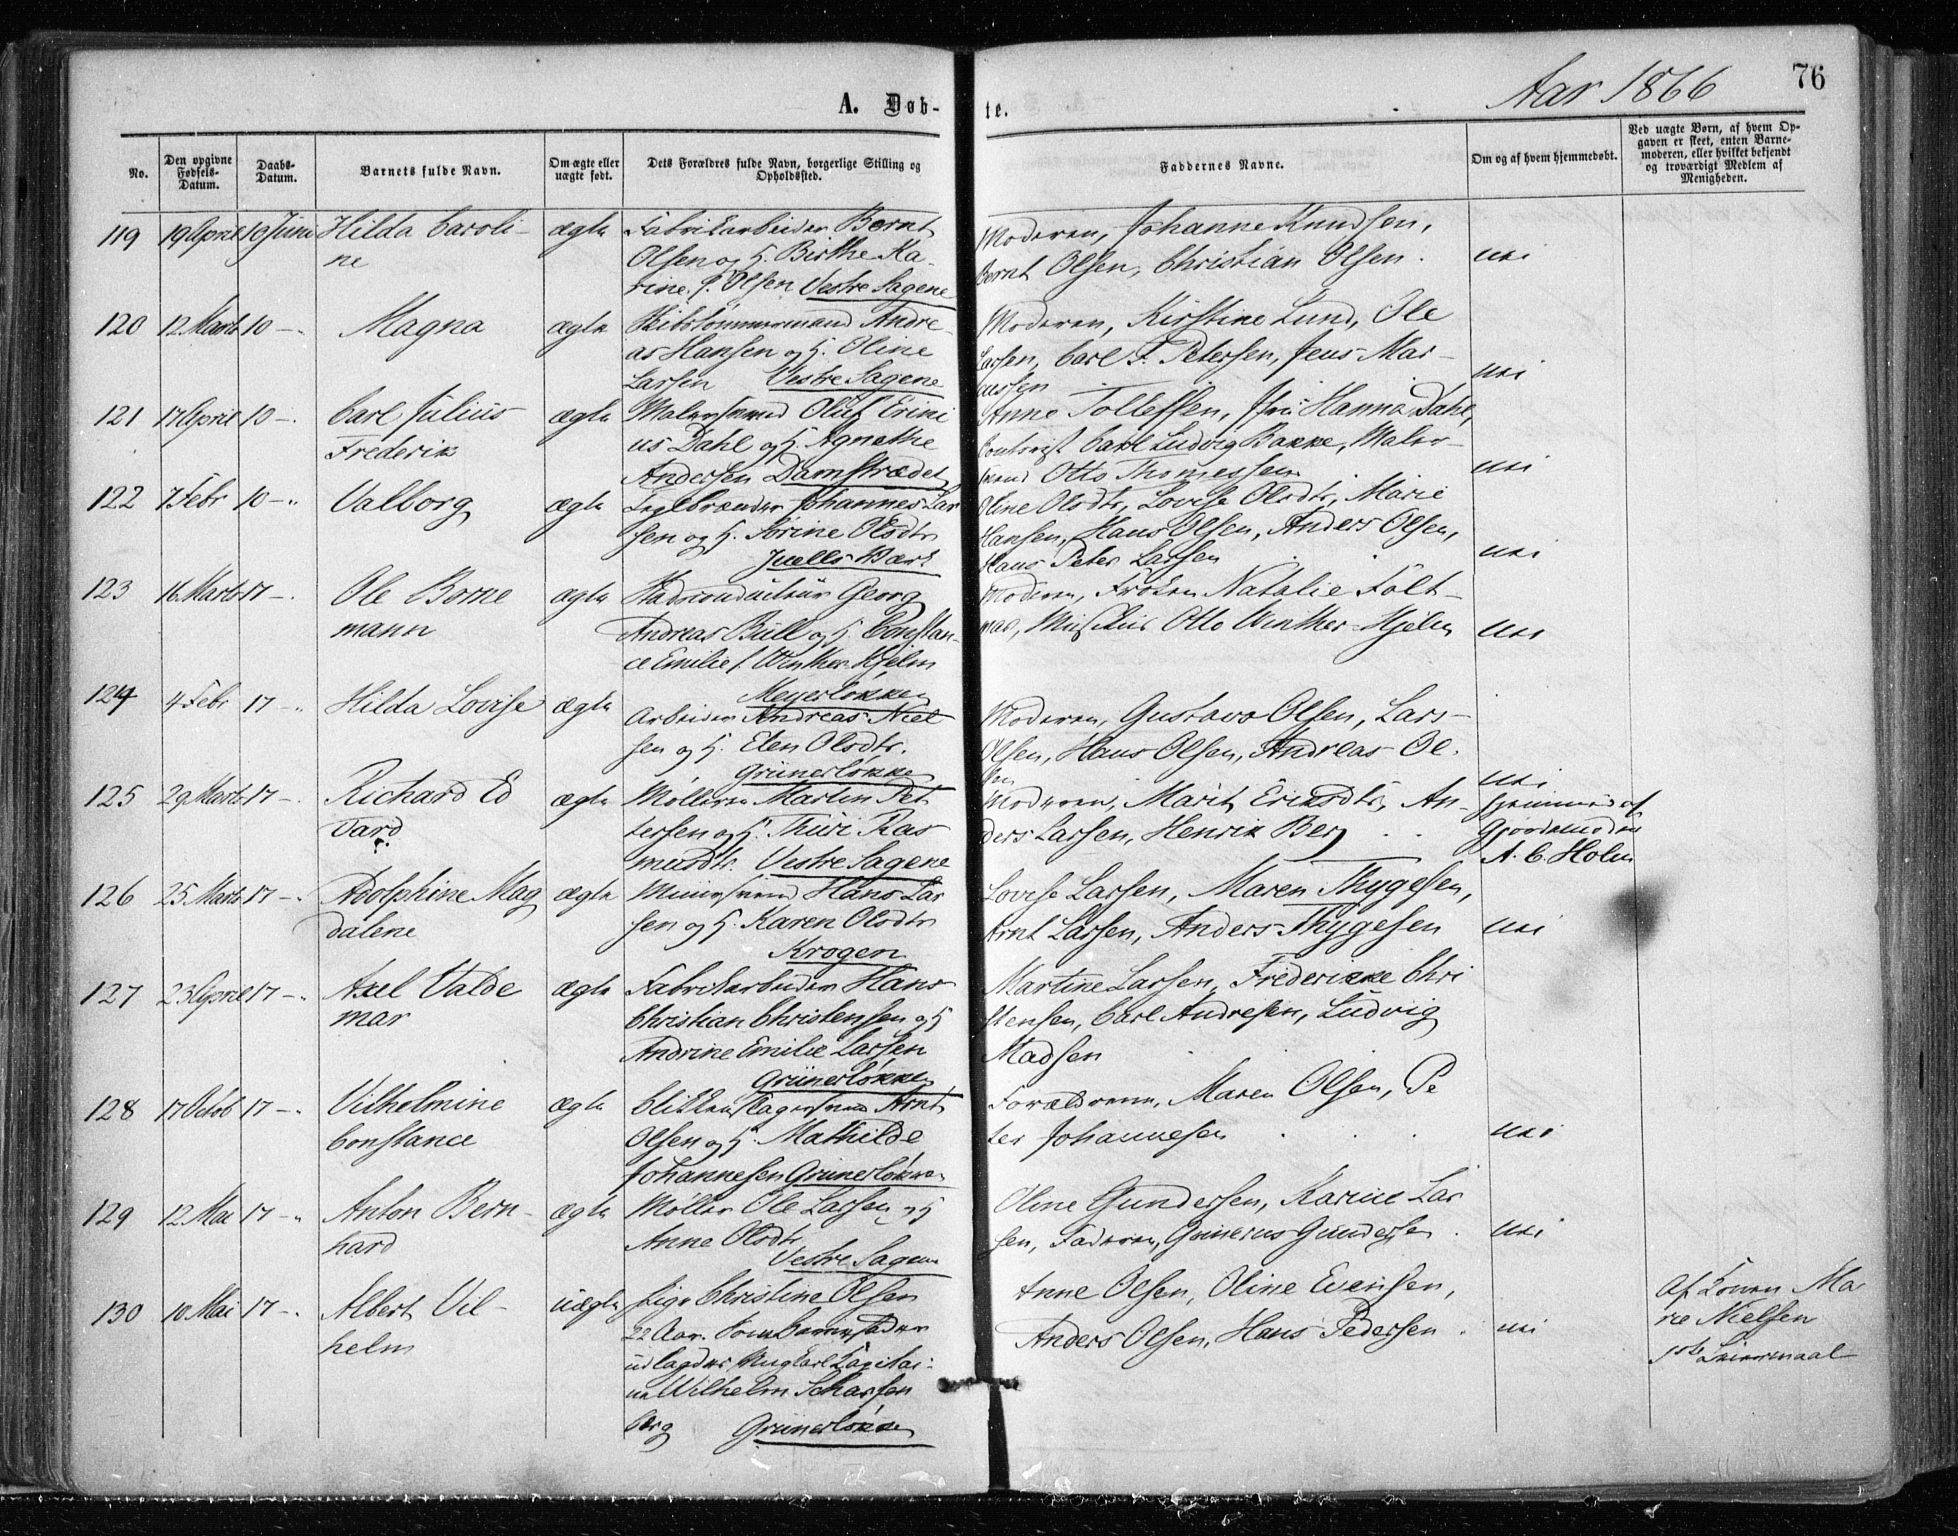 Aar 1866
76
A. Døb-
te.
No.
Den opgivne Fødsels-Datum.
Daabs-Datum.
Barnets fulde Navn.
Om ægte eller uægte født.
Dets Forældres fulde Navn, borgerlige Stilling og Opholdssted.
Faddernes Navne.
Om og af hvem hjemmedøbt.
Ved uægte Børn, af hvem Op-
gaven er skeet, enten Barne-
moderen, eller hvilket bekjendt
og troværdigt Medlem af
Menigheden.
119 19 April 10 Juni Hilda Caroli- ægte Fabrikarbeider Bernt
ne Olsen og H. Birthe Ka-
rine f. Olsen Vestre Sagene
Moderen, Johanne Knudsen,
Bernt Olsen, Christian Olsen. nei
120 12 Marts 10 -. Magna ægte Skibstømmermand Andre-
as Hansen og H. Oline
Larsen Vestre Sagene
Moderen, Kirstine Lund, Ole
Larsen, Carl F. Petersen, Jens Mar-
cussen nei
121 17 April 10 -. Carl Julius ægte Malersvend Oluf Erini
Frederik us Dahl og H. Agnethe
Andersen Damstrædet
Anne Tollefsen, Jfr Hanna Dahl,
Contorist Carl Ludvig Bakke, Maler-
svend Otto Thomessen nei
122 7 Febr 10 -. Valborg ægte Teglbrænder Johannes Lar
sen og H. Sørine Olsdtr
Juells Værk
Oline Olsdtr, Lovise Olsdtr, Marie
Hansen, Hans Olsen, Anders Olsen,
Hans Peter Larsen nei
123 16 Marts 17 -. Ole Borne ægte Stadsconducteur Georg
mann Andreas Bull og H. Constan-
ce Emilie f. Winther-Hjelm
Meyerløkken
Moderen, Frøken Natalie Felt-
mar, Otto Winther-Hjelm nei
124 4 Febr 17 -. Hilda Lovise ægte Arbeider Andreas Niel
sen og H. Elen Olsdtr.
Grünerløkke
Moderen, Gustava Olsen, Lars
Olsen, Hans Olsen, Andreas Ol-
sen nei
125 29 Marts 17 -. Richard Ed ægte Møllersv Martin Pet
vard tersen og H. Thuri Ras
musdtr. Vestre Sagene
Moderen, Marit Eriksdtr, An-
ders Larsen, Henrik Berg
Hjemmed af
Gjordemoder
A. C. Holm
126 25 Marts 17 -. Adolphine Mag ægte Muursvend Hans Lar
dalene sen og H. Karen Olsdtr
Krogen
Lovise Larsen, Maren Thygesen,
Arnt Larsen, Anders Thygesen nei
127 23 April 17 -. Axel Valde ægte Fabrikarbeider Hans
mar Christian Christensen og H
Andrine Emilie Larsen
Grünerløkken
Martine Larsen, Frederikke Chri
stensen, Carl Andresen, Ludvig
Madsen
128 17 Octob 17 -. Vilhelmine ægte Blikkenslagersvend Arnt
Constance Olsen og H. Mathilde
Johannesen Grünerløkken
Forældrene, Maren Olsen, Pe
ter Johannesen nei
129 12 Mai 17 -. Anton Bern- ægte Møller Ole Larsen og H
hard Anne Olsdtr
Vestre Sagene
Oline Gundersen, Karine Lar
sen, Faderen, Grinerus Gundersen. nei
130 10 Mai 17 -. Albert Vil- uægte Pige Christine Olsen
helm 22 Aar. Som Barnefader
udlagdes Ungkarl
Wilhelm Scharfen
berg Grünerløkke
Anne Olsen, Oline Evensen,
Anders Olsen, Hans Pedersen. nei
Af Konen Ma
rie Nielsen
1ste Leiermaal